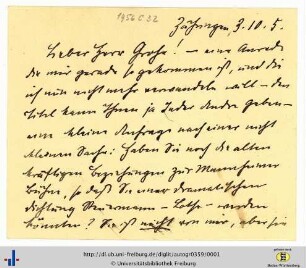 1956 C 32
Zähringen, 3. 10. 5.
Lieber Herr Grohe! – eine Anrede
die mir gerade so gekommen ist, und die
ich nun nicht mehr verwandeln will – den
Titel kann Ihnen ja Jeder Andre geben –
eine kleine Anfrage nach einer nicht
kleinen Sache: Haben Sie noch die alten
kräftigen Beziehungen zur Mannheimer
Bühne, so daß Sie einer dramatischen
Dichtung Steuermann – Lotse – werden
könnten? Sie ist nicht von mir, aber sie
http://dl.ub.uni-freiburg.de/diglit/autogr0359/0001
© Universitätsbibliothek Freiburg